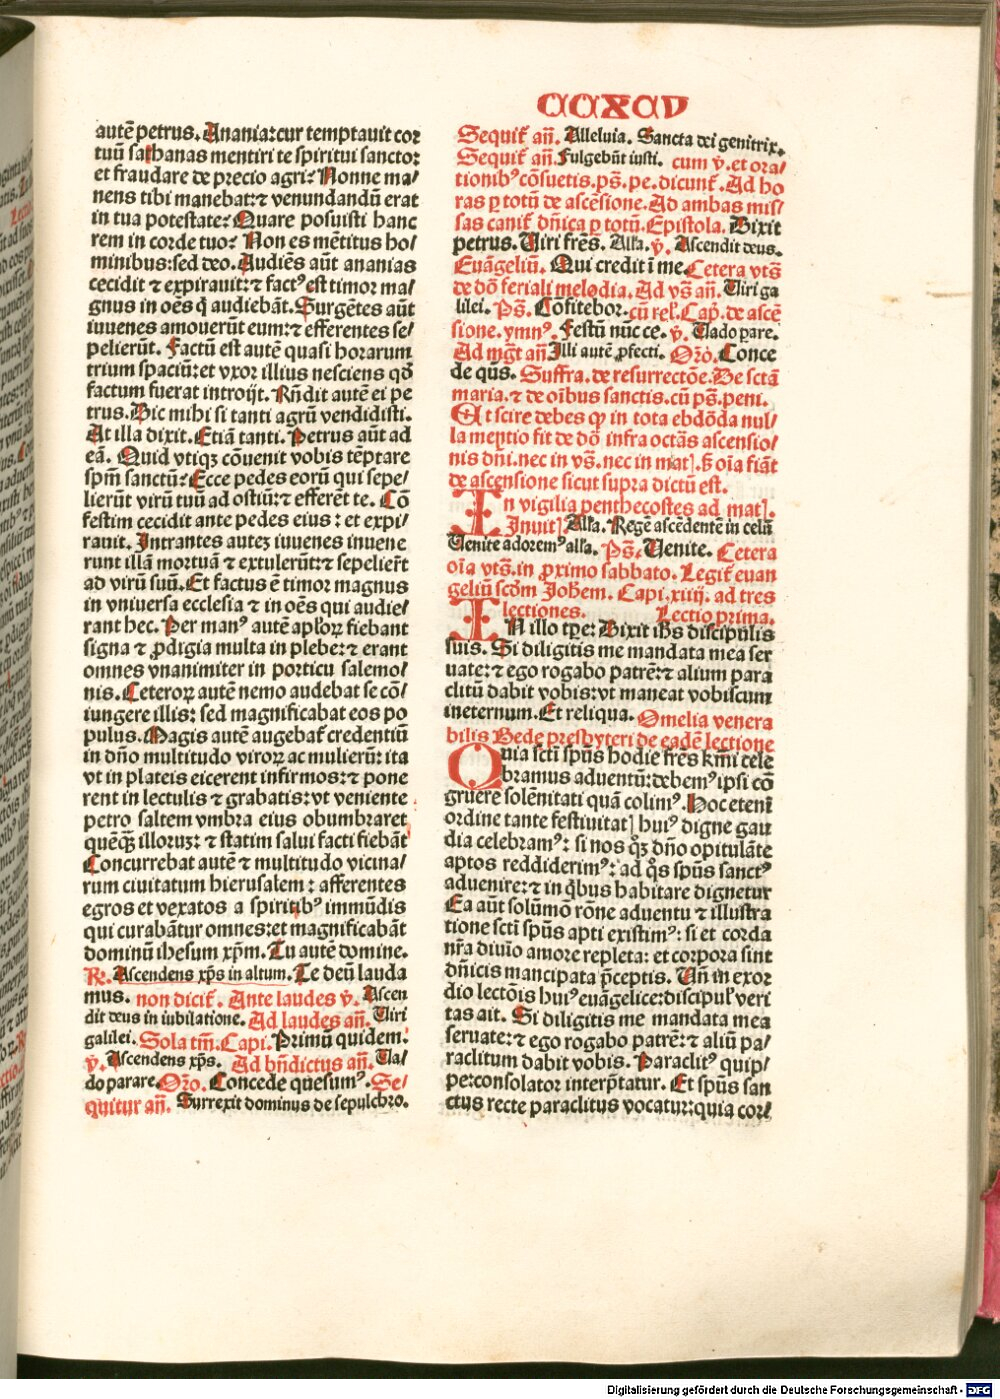 CCXCV
autē petrus. Anania: cur temptauit cor
tuū sathanas mentiri te spiritui sancto:
et fraudare de precio agri? Nonne ma/
nens tibi manebat: ⁊ venundandū erat
in tua potestate? Quare posuisti hanc
rem in corde tuo? Non es mētitus ho/
minibus: sed deo. Audiēs aūt ananias
cecidit ⁊ expirauit: ⁊ factꝰ est timor ma/
gnus in oēs q̄ audiebāt. Surgētes aūt
iuuenes amouerūt eum: ⁊ efferentes se/
pelierūt. Factū est autē quasi horarum
trium spaciū: et vxor illius nesciens qđ
factum fuerat introijt. Rn̄dit autē ei pe
trus. Dic mihi si tanti agrū vendidisti.
At illa dixit. Etiā tanti. Petrus aūt ad
eā. Quid vtiqꝫ cōuenit vobis tēptare
spm̄ sanctū? Ecce pedes eorū qui sepe/
lierūt virū tuū ad ostiū: ⁊ efferēt te. Cō
festim cecidit ante pedes eius: et expi/
rauit. Intrantes autez iuuenes inuene
runt illā mortuā ⁊ extulerūt: ⁊ sepelier̄t
ad virū suū. Et factus ē timor magnus
in vniuersa ecclesia ⁊ in oēs qui audie/
rant hec. Per manꝰ autē apl'oꝝ fiebant
signa ⁊ ꝓdigia multa in plebe: ⁊ erant
omnes vnanimiter in porticu salemo/
nis. Ceteroꝝ autē nemo audebat se cō/
iungere illis: sed magnificabat eos po
pulus. Magis autē augebat᷑ credentiū
in dn̄o multitudo viroꝝ ac mulierū: ita
vt in plateis eicerent infirmos: ⁊ pone
rent in lectulis ⁊ grabatis: vt veniente
petro saltem vmbra eius obumbraret
quēq̄ꝫ illorum: ⁊ statim salui facti fiebāt
Concurrebat autē ⁊ multitudo vicina/
rum ciuitatum hierusalem: afferentes
egros et vexatos a spiritibꝰ immūdis
qui curabāntur omnes: et magnificabāt
dominū ihesum xp̄m. Tu autē domine.
R. Ascendens xp̄s in altum. Te deū lauda
mus. non dicit᷑. Ante laudes ꝟ. Ascen
dit deus in iubilatione. Ad laudes añ. Uiri
galilei. Sola tm̄. Capi. Primū quidem.
ꝟ. Ascendens xp̄s. Ad bn̄dictus añ. Ua/
do parare. Oro. Concede quesumꝰ. Se/
quitur añ. Surrexit dominus de sepulchro.
Sequit᷑ añ. Alleluia. Sancta dei genitrix.
Sequit᷑ añ. Fulgebūt iusti. cum ꝟ. et ora/
tionibꝰ cōsuetis. ps̄. pe. dicunt᷑. Ad ho
ras ꝑ totū de ascēsione. Ad ambas mis/
sas canit᷑ dn̄ica ꝑ totū. Epistola. Dixit
petrus. Uiri frēs. Alla. ꝟ. Ascendit deus.
Euāgeliū. Qui credit ī me. Cetera vts̄
de dō feriali melodia. Ad vs̄ añ. Uiri ga
lilei. Ps̄. Cōfitebor. cū rel. Cap. de ascē
sione. ymnꝰ. Festū nūc ce. ꝟ. Uado pare.
Ad mg̅t añ. Illi autē ꝓfecti. Oro. Conce
de qūs. Suffra. de resurrectōe. De sctā
maria. ⁊ de oībus sanctis. cū ps̄. peni.
Et scire debes ꝙ in tota ebdōda nul/
la mentio fit de dō infra octās ascensio/
nis dn̄i. nec in vs̄. nec in matꝭ. s̄ oīa fiāt
de ascensione sicut supra dictū est.
In vigilia penthecostes ad matꝭ.
Inuitꝭ Alla. Regē ascēdentē in celū
Uenite adoremꝰ alla. Ps̄. Uenite. Cetera
oīa vts̄. in ꝓximo sabbato. Legit᷑ euan
geliū scdm Johēm. Capi. xiiij. ad tres
lectiones. Lectio prima.
IN illo tpe: Dixit ihs̄ discipulis
suis. Si diligitis me mandata mea ser
uate: ⁊ ego rogabo patrē: ⁊ alium para
clitū dabit vobis: vt maneat vobiscum
ineternum. Et reliqua. Omelia venera
bilis Bede presbyteri de eadē lectione
Quia scti sp̄us hodie frēs km̄i cele
bramus aduentū: debemꝰ ipsi cō
gruere solēnitati quā colimꝰ. Hoc etenī
ordine tante festiuitatꝭ huiꝰ digne gau
dia celebramꝰ: si nos q̊ꝫ dn̄o opitulāte
aptos reddiderimꝰ: ad q̊s sp̄us sanctꝰ
aduenire: ⁊ in qͥbus habitare dignetur
Ea aūt solūmō rōne aduentu ⁊ illustra
tione scti sp̄us apti existimꝰ: si et corda
nr̄a diuīo amore repleta: et corpora sint
dn̄icis mancipata p̄ceptis. Un̄ in exor
dio lectōis huiꝰ euāgelice: discipul' veri
tas ait. Si diligitis me mandata mea
seruate: ⁊ ego rogabo patrē: ⁊ aliū pa/
raclitum dabit vobis. Paraclitꝰ quip/
pe: consolator interp̄tatur. Et sp̄us san
ctus recte paraclitus vocatur: quia cor/
Digitalisierung gefördert durch die Deutsche Forschungsgemeinschaft - DFG